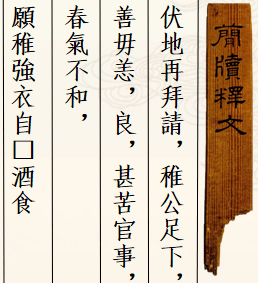 簡牘釋文
伏地再拜請，稚公足下，
善毋恙，良，甚苦官事，
春氣不和，
願稚強衣自□酒食